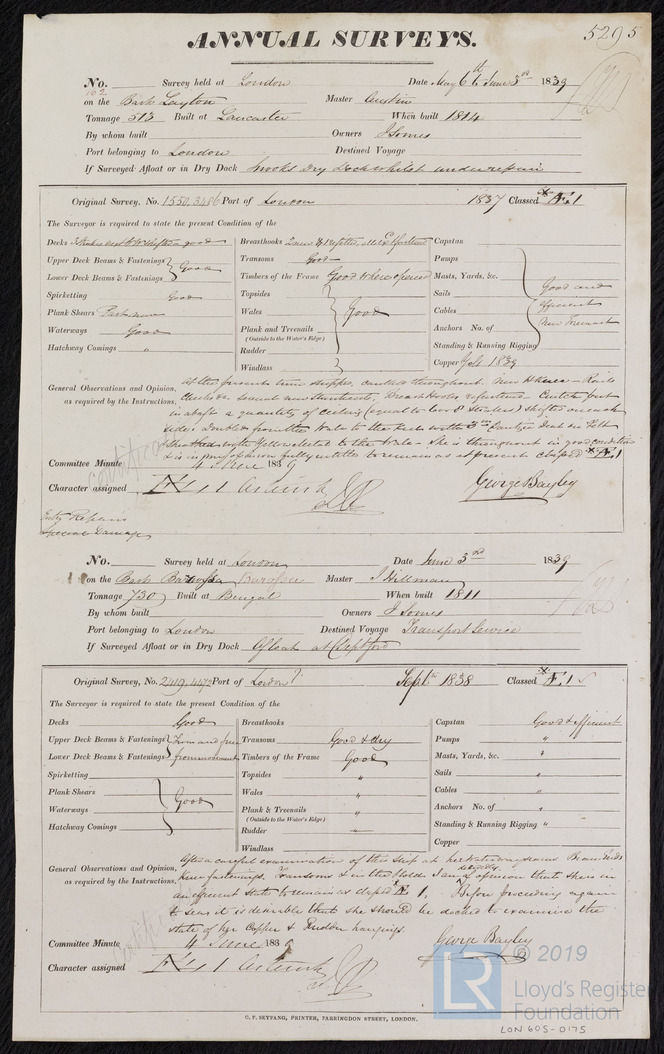 5295
ANNUAL SURVEYS.
No. 162 Survey held at London Date May 6th to June 3rd 1839
on the Bark Layton Master Austin
Tonnage 513 Built at Lancaster When built 1814
By whom built Owners J Somes
Port belonging to London Destined Voyage
If Surveyed Afloat or in Dry Dock Dry Dock whilst under repair
Original Survey, No. 1550.3486 Port of London 1837 Classed Æ 1
The Surveyor is required to state the present Condition of the
Decks good
Upper Deck Beams & Fastenings
Lower Deck Beams & Fastenings Good
Spirketting Good
Plank Shears Part new
Waterways Good
Hatchway Comings "
Breasthooks
Transoms Good
Timbers of the Frame Good where opened
Topsides
Wales Good
Plank and Treenails
(Outside to the Water's Edge)
Rudder
Windlass
Capstan
Pumps
Masts, Yards, &c. Good and
Sails efficient
Cables
Anchors No. of New
Standing & Running Rigging
Copper 1839
General Observations and Opinion, At the present time caulked throughout. New
as required by the Instructions, Breast Hooks refastened
in abaft a quantity of Ceiling (equal to shifted on each
side; Doubled from the Wale to the Keel with Deal on Felt
Sheathed with Yellow Metal to the Wale. She is throughout in good condition
& is in my opinion fully entitled to remain as at present classed Æ 1
Committee Minute 4 June 1839
Character assigned Æ 1
George Bayley
Entry Repairs
Special Damage
No. Survey held at London Date June 3rd 1839
on the Bark Barossa Master J Hillman
Tonnage 730 Built at Bengal When built 1811
By whom built Owners J Somes
Port belonging to London Destined Voyage Transport Service
If Surveyed Afloat or in Dry Dock Afloat at Deptford
Original Survey, No. Port of London Sept 1838 Classed Æ 1
The Surveyor is required to state the present Condition of the
Decks Good
Upper Deck Beams & Fastenings Firm and free
Lower Deck Beams & Fastenings from movement
Spirketting
Plank Shears
Waterways Good
Hatchway Comings
Breasthooks
Transoms Good & dry
Timbers of the Frame Good
Topsides "
Wales "
Plank & Treenails "
(Outside to the Water's Edge)
Rudder "
Windlass
Capstan Good & efficient
Pumps "
Masts, Yards, &c. "
Sails "
Cables "
Anchors No. of "
Standing & Running Rigging "
Copper
General Observations and Opinion, After a careful examination of this Ship at her Waterways Beam Ends
as required by the Instructions, Knee fastenings, Transoms & in the Hold I am decidedly of opinion that she is in
an efficient state to remain as classed Æ 1. Before proceeding again
to Sea it is desirable that she should be docked to examine the
state of her Copper & Rudder hangings.
Committee Minute 4 June 1839
Character assigned Æ 1
George Bayley
C. F. SEYFANG, PRINTER, FARRINGDON STREET, LONDON.
LR © 2019
Lloyd's Register
Foundation
LON 605-0175